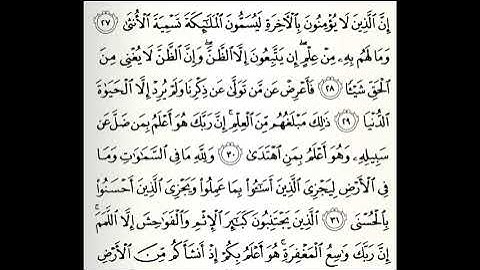 إِنَّ ٱلَّذِينَ لَا يُؤْمِنُونَ بِٱلْأَخِرَةِ لَيُسَمُّونَ ٱلْمَلَٰٓئِكَةَ تَسْمِيَةَ ٱلْأُنثَىٰ ٢٧
وَمَا لَهُم بِهِۦ مِنْ عِلْمٍ ۖ إِن يَتَّبِعُونَ إِلَّا ٱلظَّنَّ ۖ وَإِنَّ ٱلظَّنَّ لَا يُغْنِى مِنَ
ٱلْحَقِّ شَيْـًٔا ٢٨ فَأَعْرِضْ عَن مَّن تَوَلَّىٰ عَن ذِكْرِنَا وَلَمْ يُرِدْ إِلَّا ٱلْحَيَوٰةَ
ٱلدُّنْيَا ٢٩ ذَٰلِكَ مَبْلَغُهُم مِّنَ ٱلْعِلْمِ ۚ إِنَّ رَبَّكَ هُوَ أَعْلَمُ بِمَن ضَلَّ عَن
سَبِيلِهِۦ وَهُوَ أَعْلَمُ بِمَنِ ٱهْتَدَىٰ ٣٠ وَلِلَّهِ مَا فِى ٱلسَّمَٰوَٰتِ وَمَا
فِى ٱلْأَرْضِ لِيَجْزِىَ ٱلَّذِينَ أَسَٰٓـُٔوا۟ بِمَا عَمِلُوا۟ وَيَجْزِىَ ٱلَّذِينَ أَحْسَنُوا۟
بِٱلْحُسْنَى ٣١ ٱلَّذِينَ يَجْتَنِبُونَ كَبَٰٓئِرَ ٱلْإِثْمِ وَٱلْفَوَٰحِشَ إِلَّا ٱللَّمَمَ ۚ
إِنَّ رَبَّكَ وَٰسِعُ ٱلْمَغْفِرَةِ ۚ هُوَ أَعْلَمُ بِكُمْ إِذْ أَنشَأَكُم مِّنَ ٱلْأَرْضِ